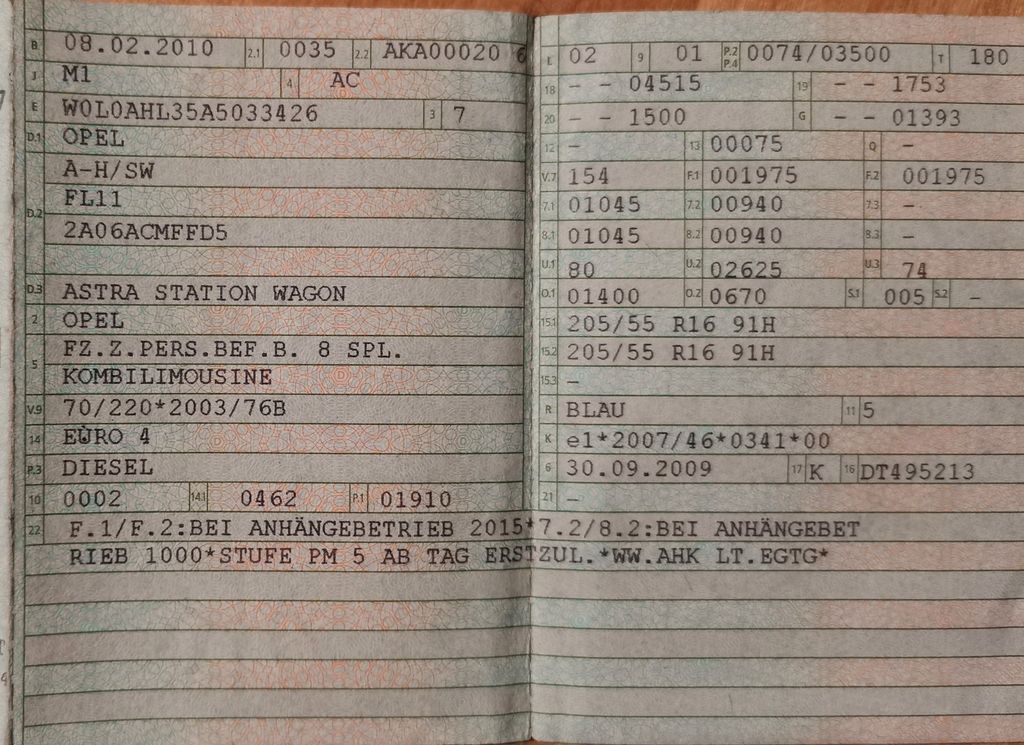 B 08.02.2010 2.1 0035 2.2 AKA00020 6
J M1 4 AC
E W0L0AHL35A5033426 3 7
D.1 OPEL
A-H/SW
FL11
D.2
2A06ACMFFD5
D.3 ASTRA STATION WAGON
2 OPEL
FZ.Z.PERS.BEF.B. 8 SPL.
5
KOMBILIMOUSINE
V.9 70/220*2003/76B
14 EURO 4
P.3 DIESEL
10 0002 14.1 0462 P.1 01910
L 02 9 01 P.2 P.4 0074/03500 T 180
18 - - 04515 19 - - 1753
20 - - 1500 G - - 01393
12 - 13 00075 Q -
V.7 154 F.1 001975 F.2 001975
7.1 01045 7.2 00940 7.3 -
8.1 01045 8.2 00940 8.3 -
U.1 80 U.2 02625 U.3 74
O.1 01400 O.2 0670 S.1 005 S.2 -
15.1 205/55 R16 91H
15.2 205/55 R16 91H
15.3 -
R BLAU 11 5
K e1*2007/46*0341*00
6 30.09.2009 17 K 16 DT495213
21 -
22 F.1/F.2:BEI ANHÄNGEBETRIEB 2015*7.2/8.2:BEI ANHÄNGEBET
RIEB 1000*STUFE PM 5 AB TAG ERSTZUL.*WW.AHK LT.EGTG*